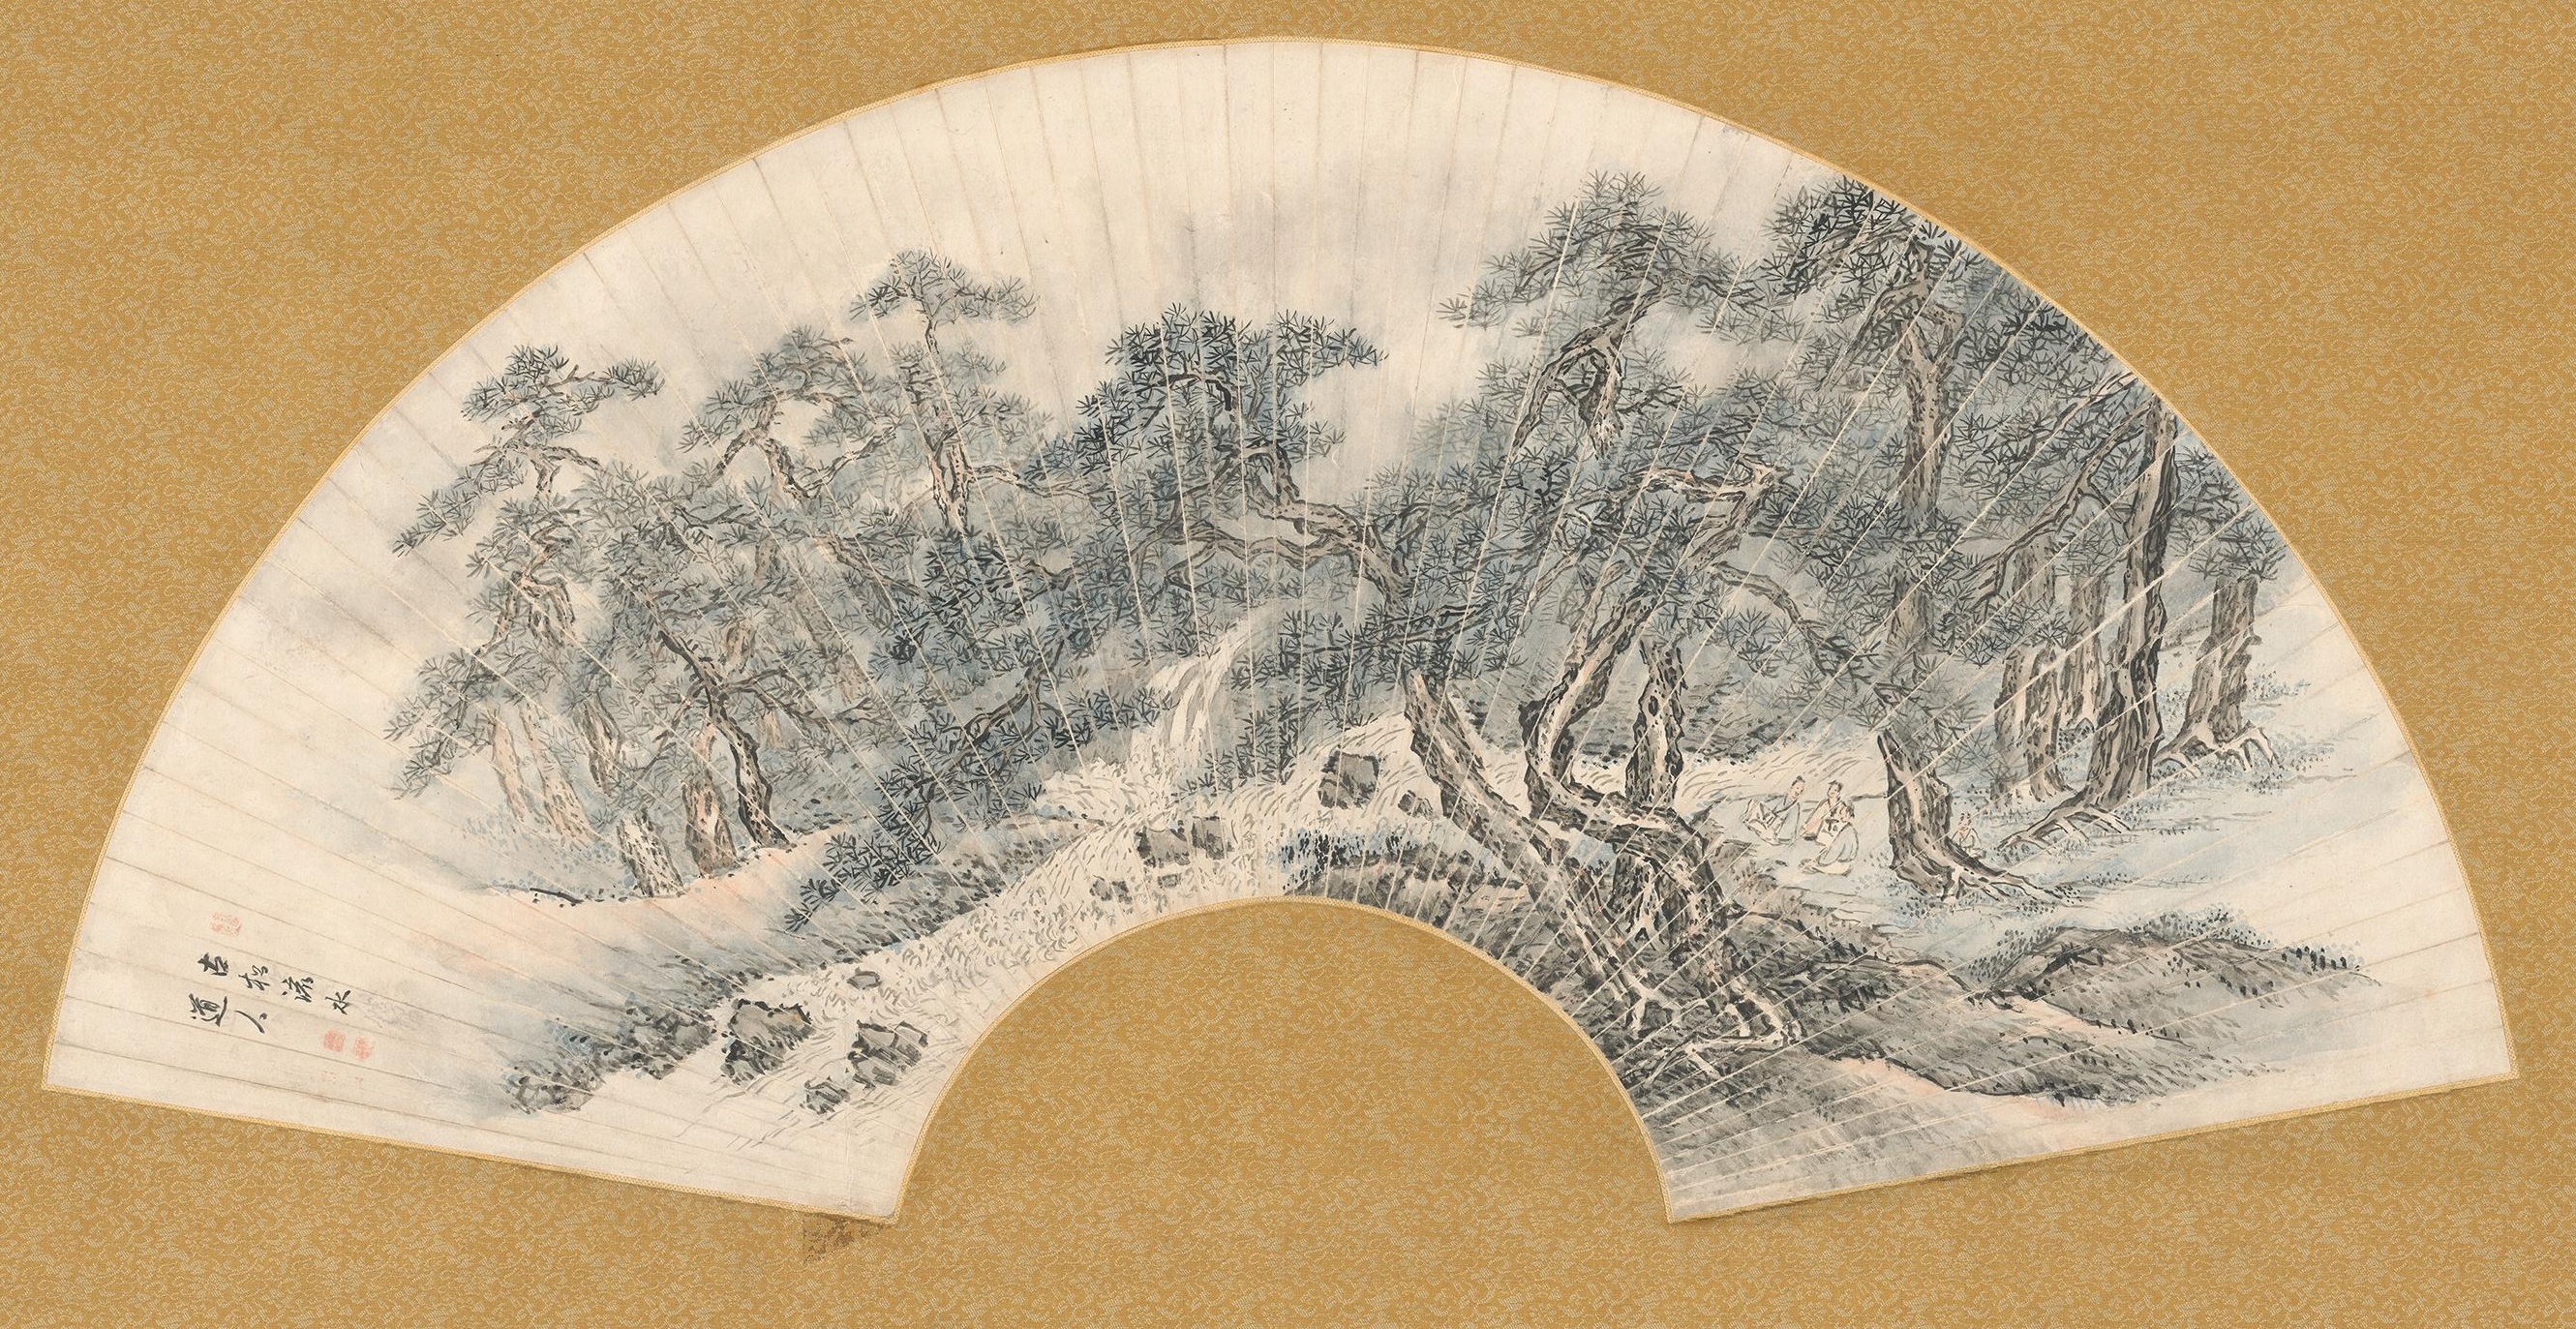 古松流水
道人